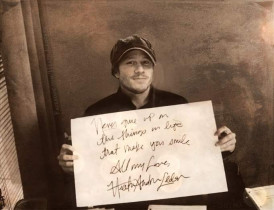 Never give up on
the things in life
that make you smile
All my Love,
Heath Andrew Ledger